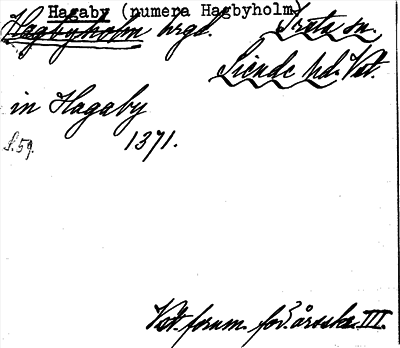 Hagaby (numera Hagbyholm)
Hagbyholm hrgd. Irsta sn.
Siende hd. Vstl.
in Hagaby
s. 59. 1371.
Väst. fornm. för:s årsskr. III.